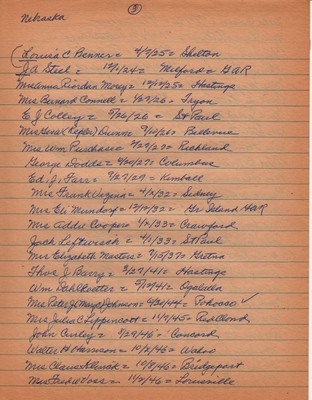 Nebraska
3
Louis C Benner = 4/9/25 = Shelton
J. A. Steel = 12/1/24 = Milford = GAR
Mrs Anna Riordan Morey = 12/19/25 = Hastings
Mrs Bernard Connell = 1/27/26 = Tryon
E J Colley = 5/26/26 = St Paul
Mrs Dunn = 7/10/26 = Bellevue
Mrs Wm Purchase = 3/29/27 = Richland
George Dodds = 27 = Columbus
Ed. J. Farr = 7/27/29 = Kimball
Mrs Frank Vezina = 4/2/32 = Sidney
Mrs Eli Munsdorf = 12/12/32 = Gr Island GAR
Mrs Addie Cooper = 1/2/33 = Crawford
Jack Leftwich = 4/1/33 = St Paul
Mrs Elizabeth Masters = 7/15/37 = Gretna
Thos J Barry = 3/29/41 = Hastings
Wm Dahlkoetter = 5/19/41 = Ogalalla
Mrs Peter J. Johnson = 4/21/44 = Pohocco ✓
Mrs Julia C Lippincott = 11/4/45 = Red Cloud
John Curley = 3/29/46 = Concord
Walter H Harrison = 10/2/46 = Wahoo
Mrs Claus Klenck = 10/8/46 = Bridgeport
Mrs Fred W Voss = 11/4/46 = Louisville